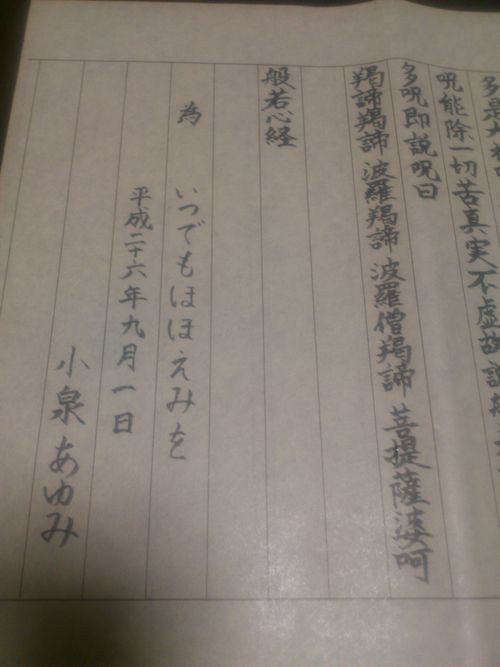 多是大神呪
呪能除一切苦真実不虚故説般若
多呪即説呪曰
羯諦羯諦 波羅羯諦 波羅僧羯諦 菩提薩婆呵
般若心経
為 いつでもほほえみを
平成二十六年九月一日
小泉あゆみ